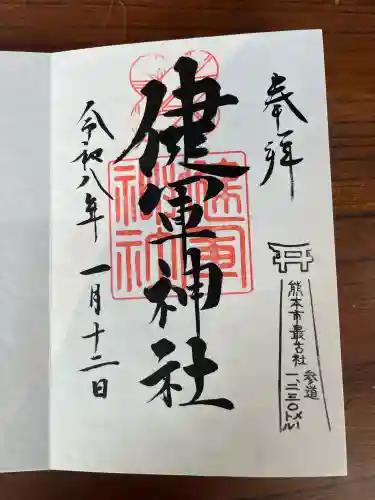 奉拝
熊本市最古社
参道
一、二三〇メートル
健軍神社
健軍
神社
令和八年 一月十二日